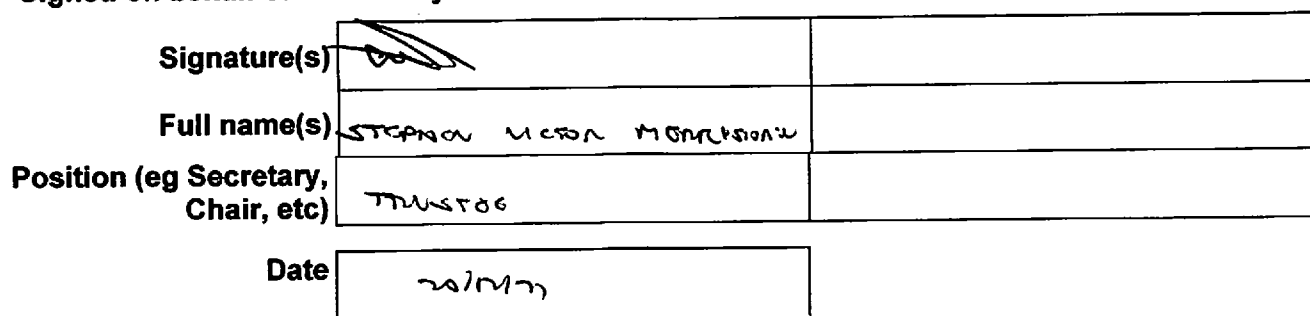 Signature(s)
Full name(s) STEPHEN VICTOR
Position (eg Secretary,
Chair, etc) TRUSTEE
Date